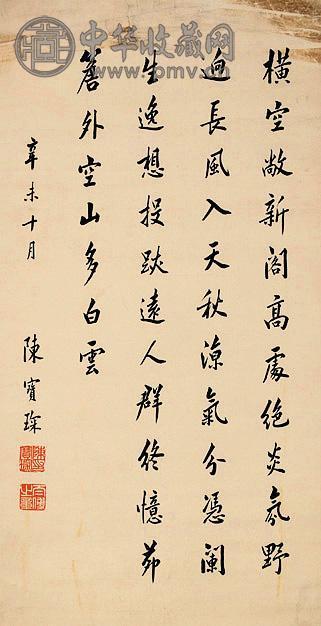 中华收藏网
www.pmv.cn
橫空敞新閣高處絶炎氛野
迥長風入天秋涼氣分憑闌
生逸想投跡遠人群終憶茆
簷外空山多白雲
辛未十月
陳寶琛